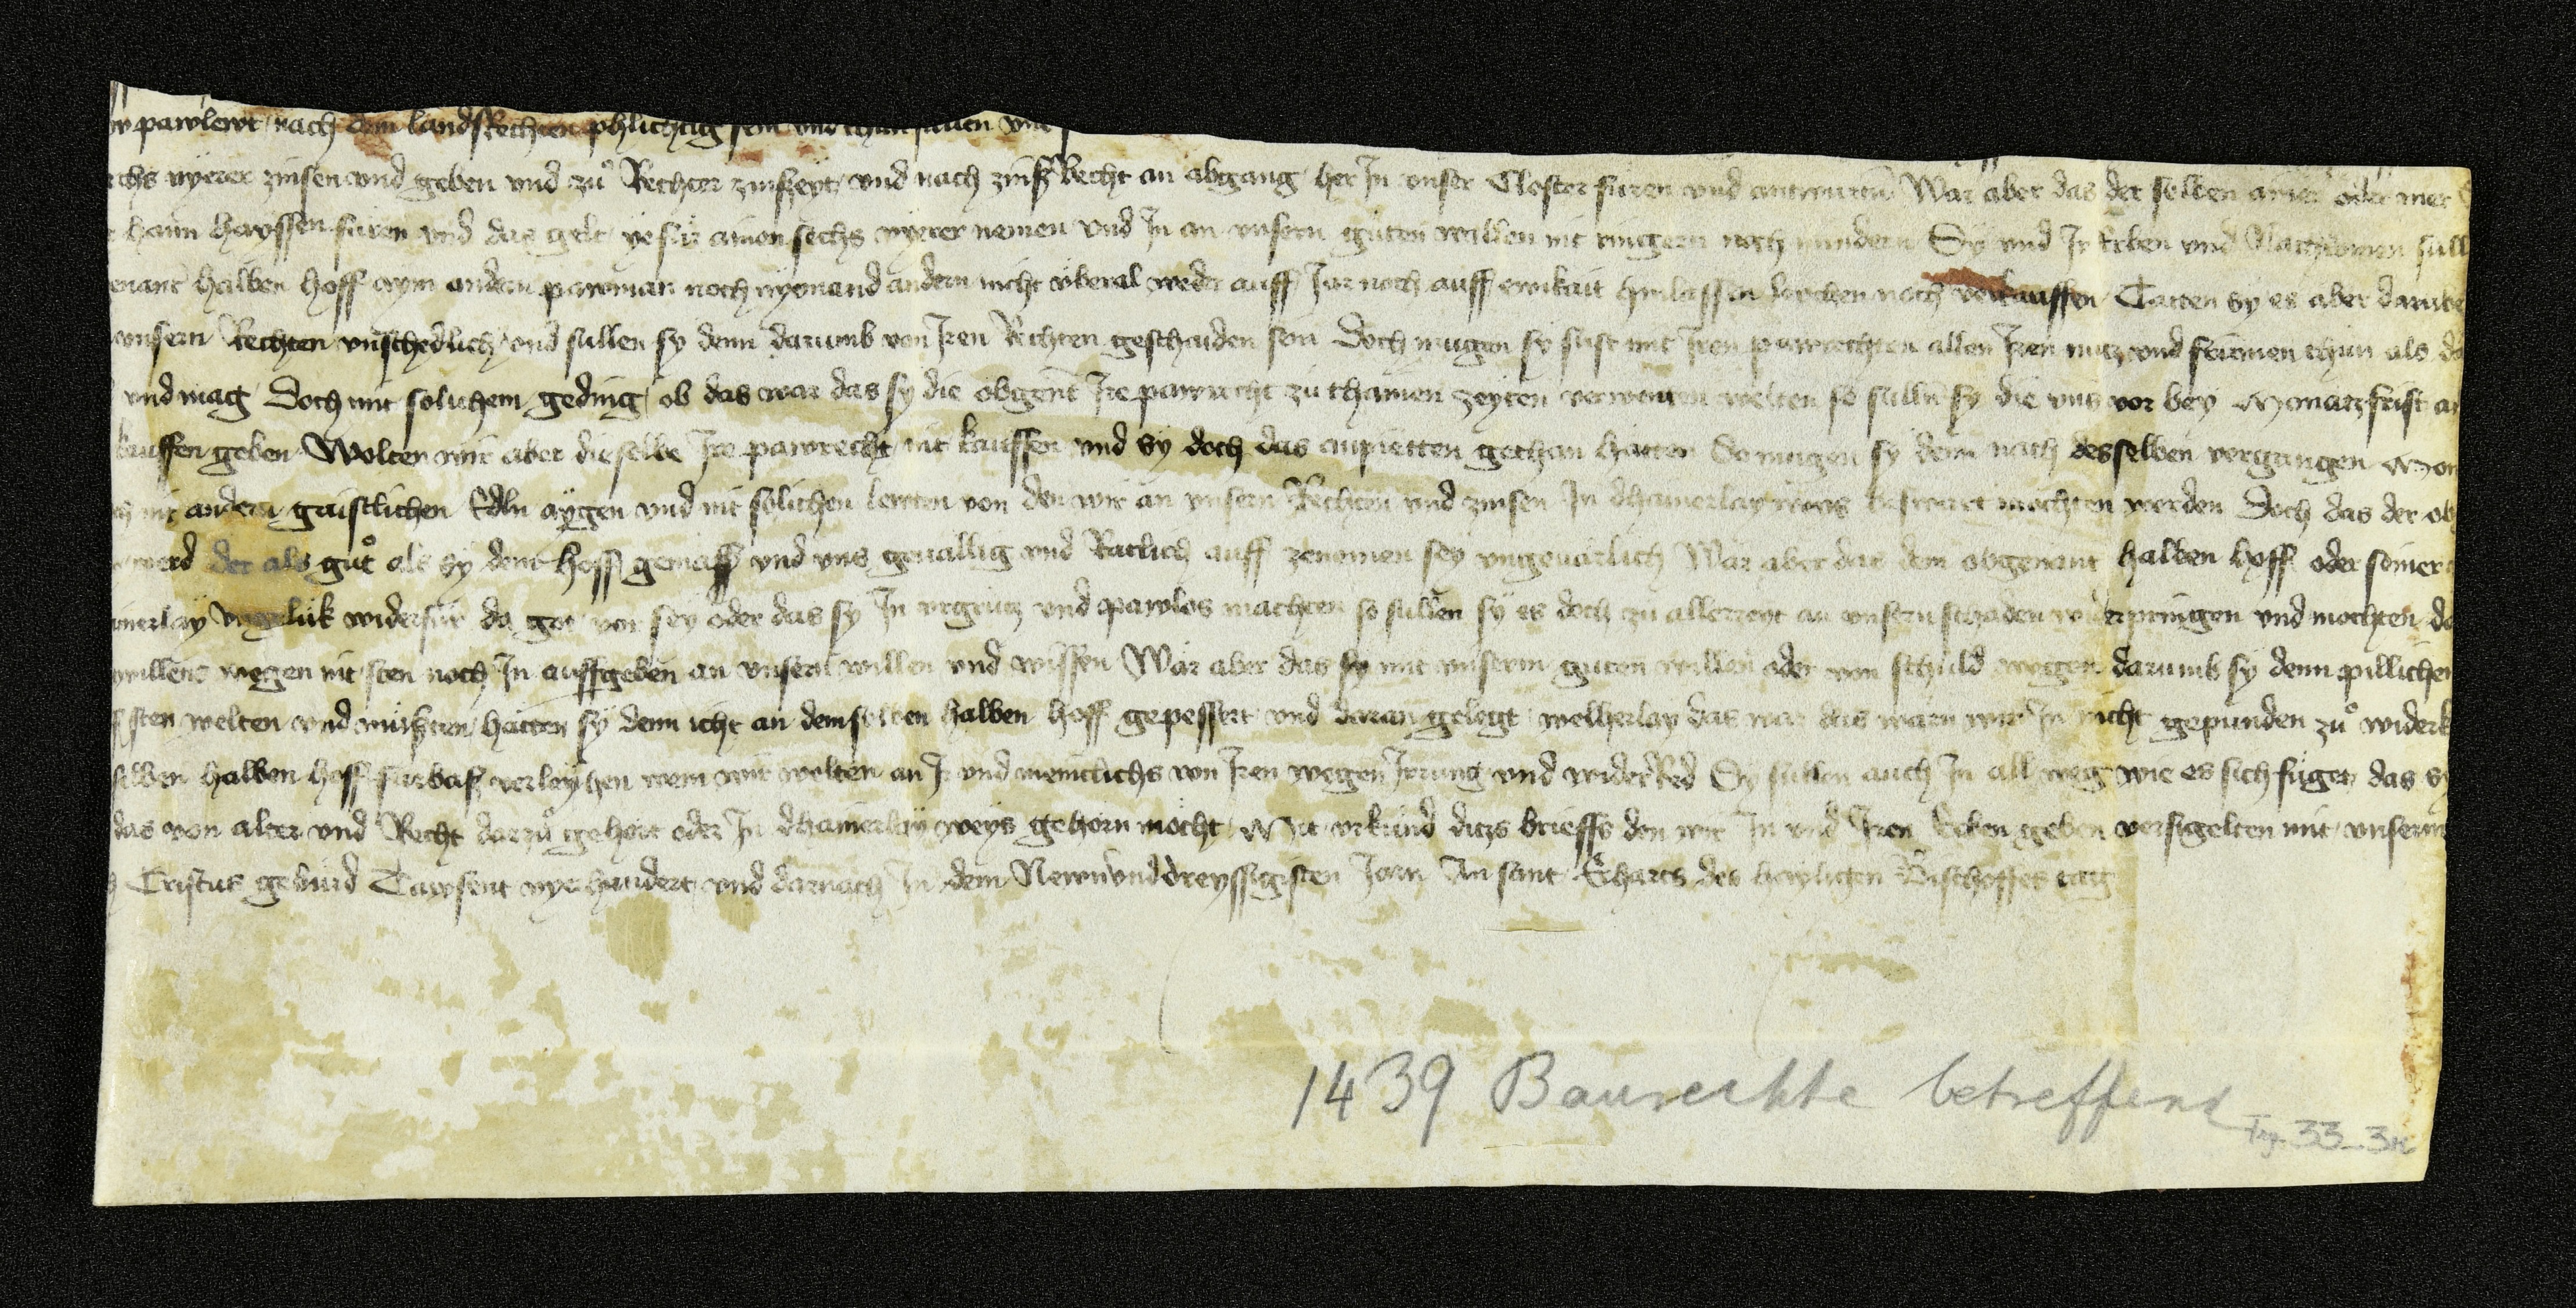 pawlewt nach dem landsRechten phlichtig sein und thun sullen und
chs nyerer zinsen und geben und zů Rechter zinszeyt und nach zinsz Recht an abgang her In unser Closter füren und antwurten Wär aber das der selben ainer oder mer
haim hayssen füren und das gelt ye für ainen sechs nyerer nemen und In an unsern guten willen nit ringern noch mindern Sy und Ir Erben und Nachkomen sull
enant halben hoff aym andern pawman noch nyemand andern nicht überal weder auff Jar noch auff ewikait hinlassen leychen noch verkauffen Tätten sy es aber darübe
unsern Rechten unschedlich und sullen sy denn darumb von Iren Rechten geschaiden sein Doch mugen sy sust mit Iren pawrechten allen Iren nutz und frumen thun als da
und mag Doch mit solichem geding ob das wär das sy die obgent Ire pawrecht zu thainen zeyten verwenden welten so sulln sy die uns vor bey Monatzfrist an
kauffen geben Wolten wir aber dieselbe Ire pawrecht nit kauffen und sy doch das anpietten gethan hätten So mugen sy denn nach desselben vergangen Mon
nit andern gaistlichen Edln aygen und nit solichen lewten von den wir an unsern Rechten und zinsen In dhainerlay weis beswärt möchten werden Doch das der ob
werd der als gůt als sy dem hoff gemäss und uns geuällig und Rätlich auff zenemen sey ungeuärlich Wär aber das dem obgenant halben hoff oder seiner
inerlay ungelük widerfür da got vor sey oder das sy In urgrütz und pawlos machten so sullen sy es doch zu allerzeyt an unsern schaden widerpringen und mochten da
unwillens wegen nit sten noch In auffgeben an unsern willen und wissen Wär aber das sy mit unserm guten willen oder von schuld wegen darumb sy denn pillichen
sten welten und müsten hätten sy denn icht an demselben halben hoff gepessert und daran gelegt welherlay das wär das wärn wir In nicht gepunden zů widerk
selben halben hoff fürbas verleyhen wem wir wolten an Ir und meniclichs von Iren wegen Irrung und widerRed Sy sullen auch In all weg wie es sich füget das sy
das von alter und Recht darzů gehört oder In dhainerlay weys gehörn möcht Mit urkund ditzs brieffs den wir In und Iren Erben geben versigelten mit unserm
Cristus gebürd Tawsent vyerhundert und darnach In dem Newnunddreyssigisten Jarn An sant Erharts des heyligen Bischoffes tag
1439 Baurechte betreffend
33-3